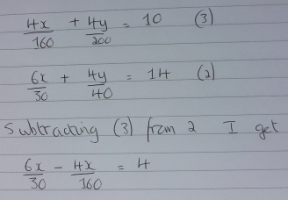 4x/160 + 4y/200 = 10 (3)
6x/30 + 4y/40 = 14 (2)
Subtracting (3) from 2 I get
6x/30 - 4x/160 = 4